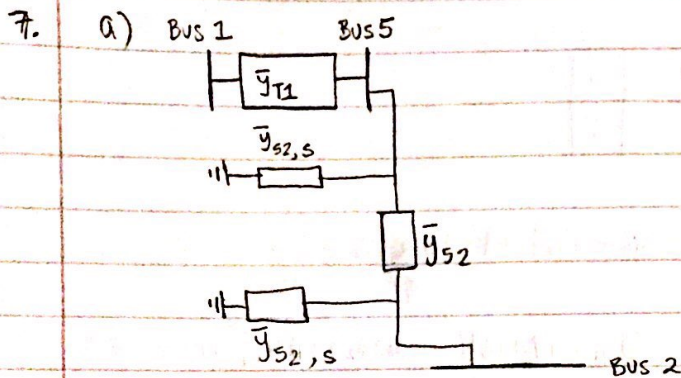 7. a) BUS 1 BUS 5
ȳT1
ȳ52,s
ȳ52
ȳ52,s
BUS 2